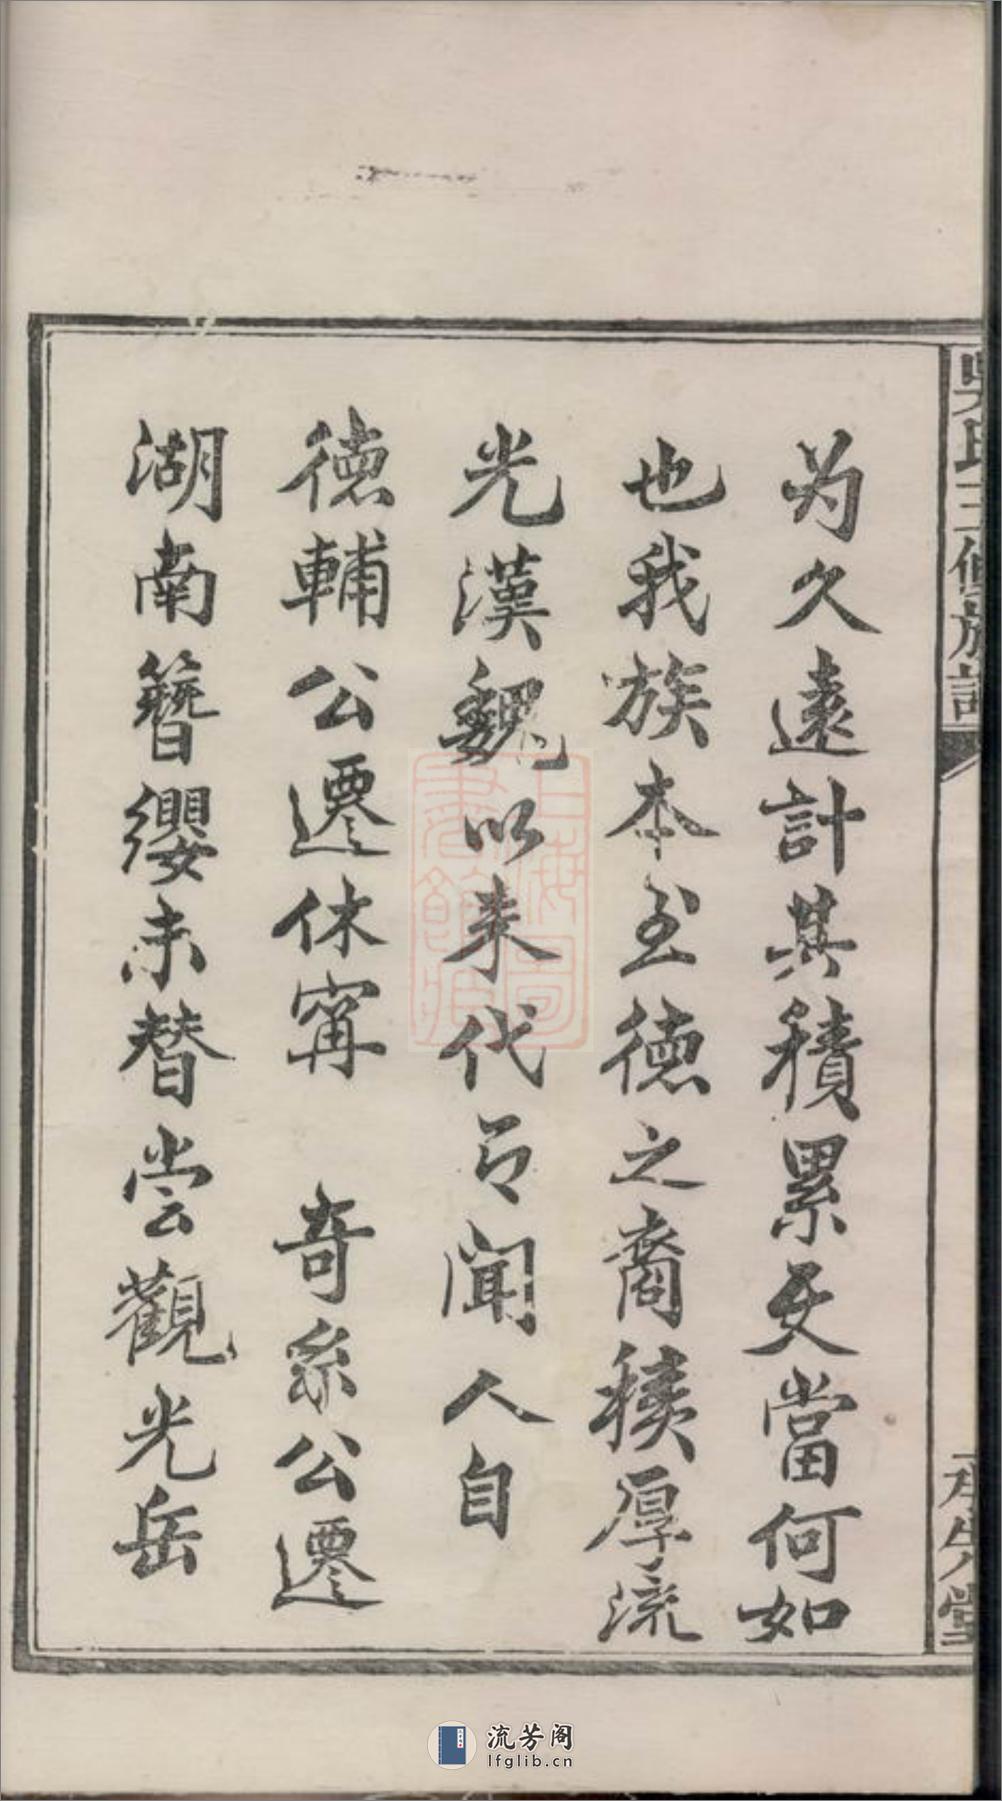 吳氏三修族譜
承先堂
为久遠計其積累又當何如
也我族本至德之裔積厚流
光漢魏以来代了聞人自
德輔公遷休甯 奇系公遷
湖南簪纓未替嘗觀光岳
上海圖書館藏
流芳阁
lfglib.cn